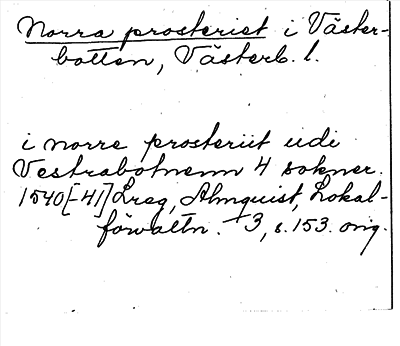 Norra prosteriet i Väster-
botten, Västerb. l.
i norre prosteriit udi
Vestrabotnenn 4 sokner.
1540[-41] Lreg, Almquist, Lokal-
förvaltn. 3, s. 153. orig.